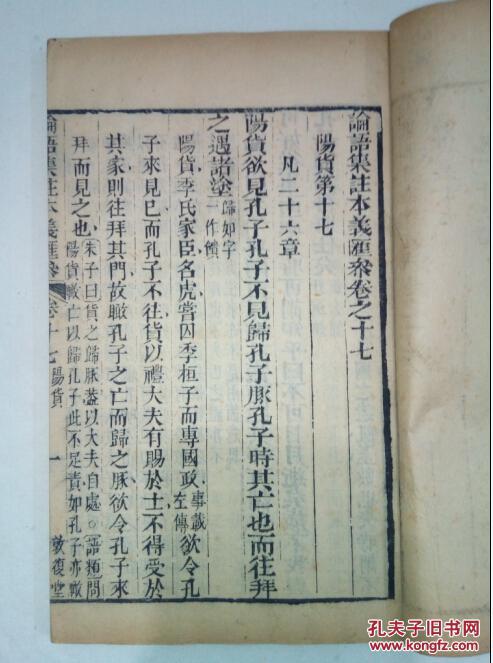 論語集註本義匯叅卷之十七
陽貨第十七
凡二十六章
陽貨欲見孔子孔子不見歸孔子豚孔子時其亡也而往拜
之遇諸塗歸如字一作饋
陽貨季氏家臣名虎嘗囚季桓子而專國政事載左傳欲令孔
子來見已而孔子不往貨以禮大夫有賜於士不得受於
其家則往拜其門故瞰孔子之亡而歸之豚欲令孔子來
拜而見之也朱子曰貨之歸豚蓋以大夫自處○語類問
陽貨瞰亡以歸孔子此不足責如孔子亦瞰
論語集註本義匯叅 卷十七 陽貨 一 敦復堂
孔夫子旧书网
www.kongfz.com